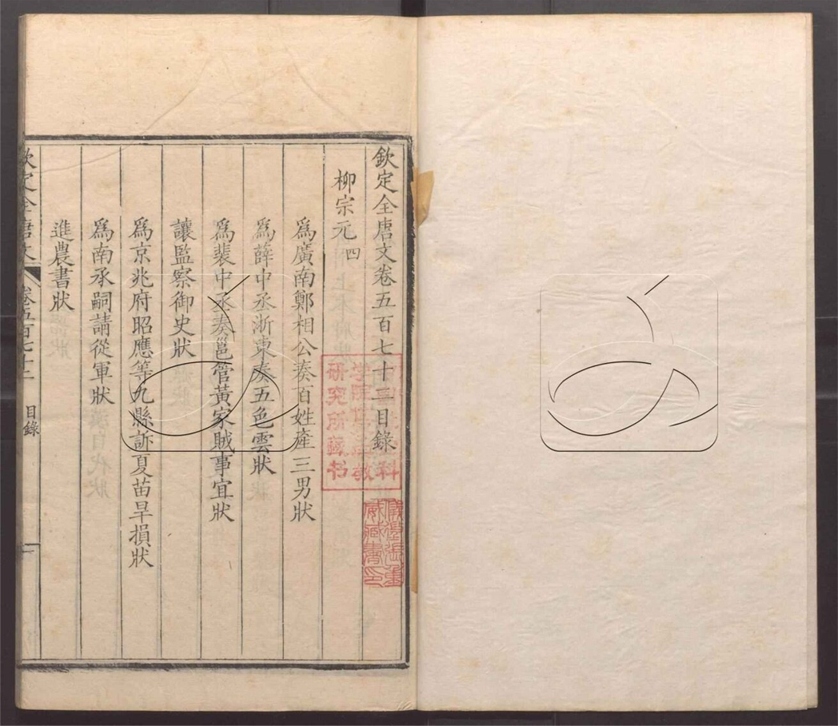 欽定全唐文卷五百七十二目錄
柳宗元四
爲廣南鄭相公奏百姓產三男狀
爲薛中丞浙東奏五色雲狀
爲裴中丞奏邕管黃家賊事宜狀
讓監察御史狀
爲京兆府昭應等九縣訴夏苗旱損狀
爲南承嗣請從軍狀
進農書狀
欽定全唐文
卷五百七十二
目錄
一
研究所藏书